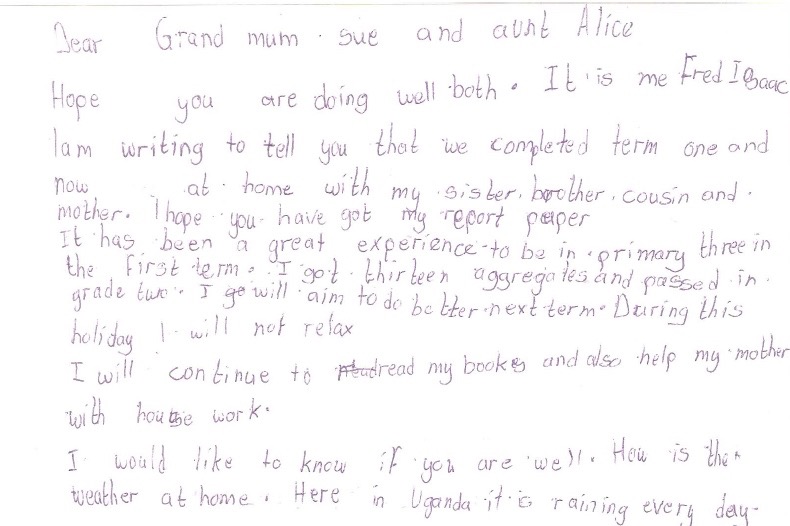 Dear Grand mum . sue and aunt Alice
Hope you are doing well both . It is me Fred Isaac
I am writing to tell you that we completed term one and
now at home with my sister, brother, cousin and .
mother. I hope you have got my report paper
It has been a great experience to be in primary three in
the first term. I got thirteen aggregates and passed in
grade two. I go will aim to do better next term. During this
holiday I will not relax
I will continue to read my books and also help my mother
with house work.
I would like to know if you are well. How is the
weather at home. Here in Uganda it is raining every day-